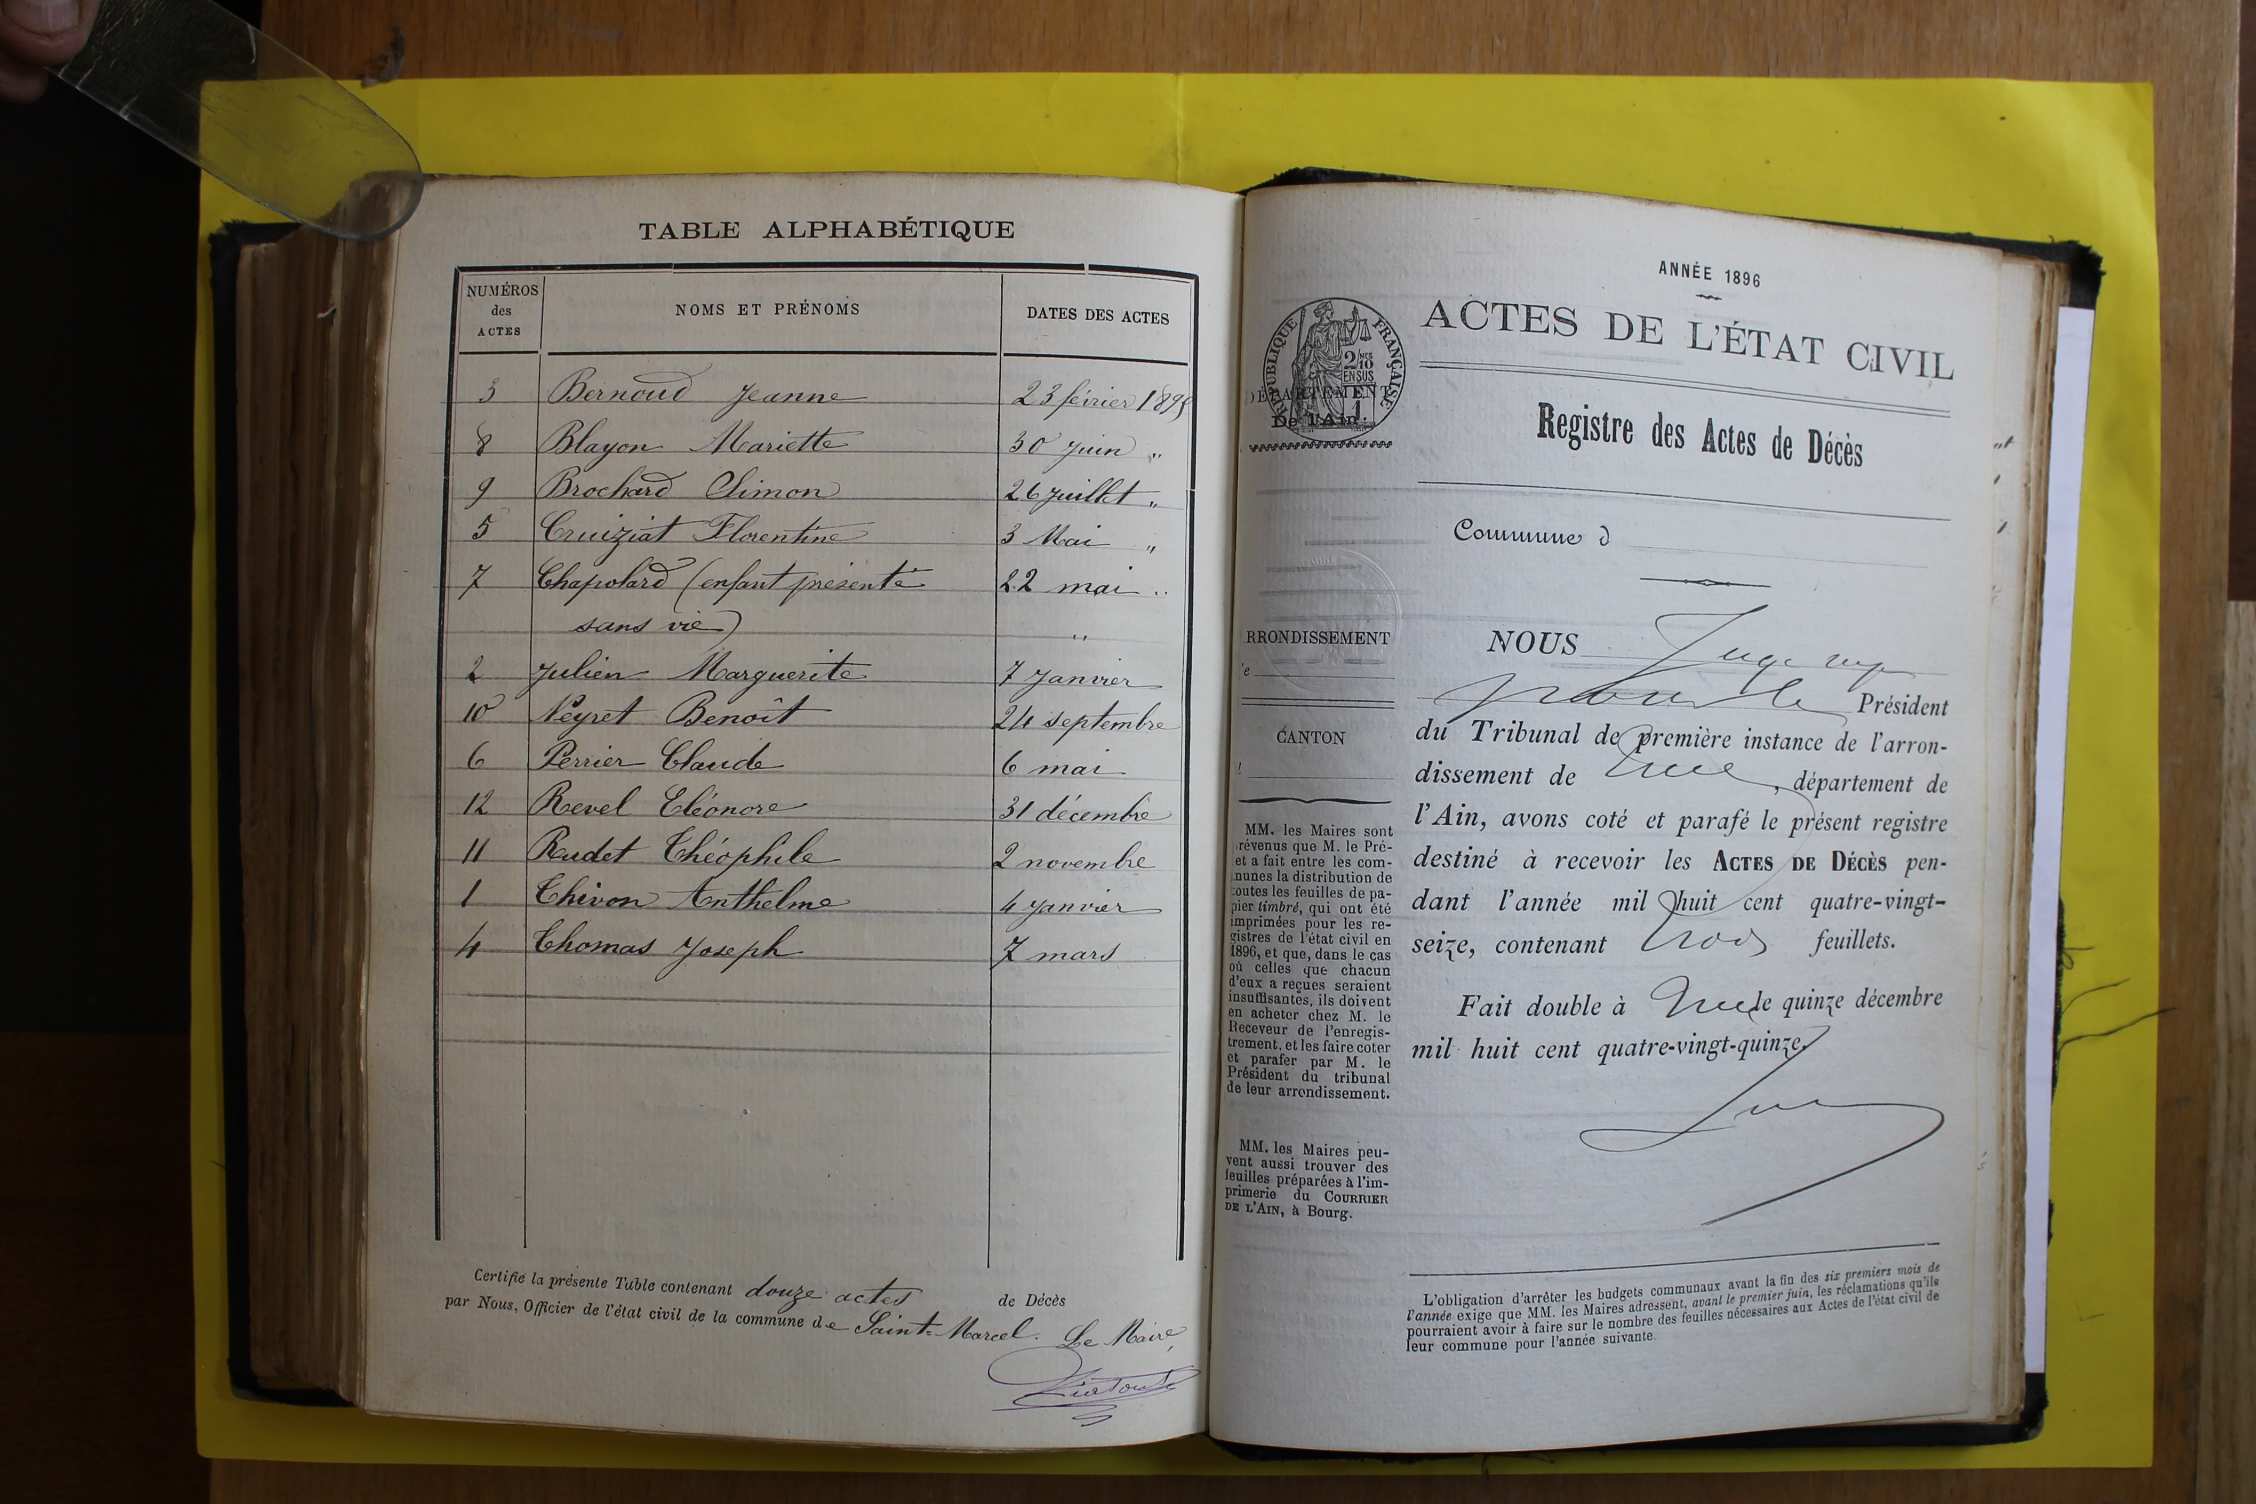 TABLE ALPHABÉTIQUE
NUMÉROS des ACTES NOMS ET PRÉNOMS DATES DES ACTES
3 Bernoud Jeanne 23 février 1895
8 Blayon Mariette 30 juin "
9 Brochard Simon 26 juillet "
5 Cruiziat Florentine 3 Mai "
7 Chapolard (enfant présenté 22 mai "
sans vie) "
2 Julien Marguerite 7 Janvier
10 Neyret Benoît 24 septembre
6 Perrier Claude 6 mai
12 Revel Eléonore 31 décembre
11 Rudet Théophile 2 novembre
1 Thivon Anthelme 4 janvier
4 Thomas Joseph 7 mars
Certifié la présente Table contenant douze actes de Décès
par Nous, Officier de l'état civil de la commune de Saint-Marcel. Le Maire,
ANNÉE 1896
ACTES DE L'ÉTAT CIVIL
Registre des Actes de Décès
Commune d
RÉPUBLIQUE FRANÇAISE
2/10 EN SUS
DÉPARTEMENT
De l'Ain
RRONDISSEMENT
e
CANTON
MM. les Maires sont
révenus que M. le Pré-
et a fait entre les com-
nunes la distribution de
toutes les feuilles de pa-
pier timbré, qui ont été
imprimées pour les re-
gistres de l'état civil en
1896, et que, dans le cas
où celles que chacun
d'eux a reçues seraient
insuffisantes, ils doivent
en acheter chez M. le
Receveur de l'enregis-
trement, et les faire coter
et parafer par M. le
Président du tribunal
de leur arrondissement.
MM. les Maires peu-
vent aussi trouver des
feuilles préparées à l'im-
primerie du COURRIER
DE L'AIN, à Bourg.
NOUS Juge
Président
du Tribunal de première instance de l'arron-
dissement de , département de
l'Ain, avons coté et parafé le présent registre
destiné à recevoir les ACTES DE DÉCÈS pen-
dant l'année mil huit cent quatre-vingt-
seize, contenant trois feuillets.
Fait double à le quinze décembre
mil huit cent quatre-vingt-quinze.
L'obligation d'arrêter les budgets communaux avant la fin des six premiers mois de
l'année exige que MM. les Maires adressent, avant le premier juin, les réclamations qu'ils
pourraient avoir à faire sur le nombre des feuilles nécessaires aux Actes de l'état civil de
leur commune pour l'année suivante.